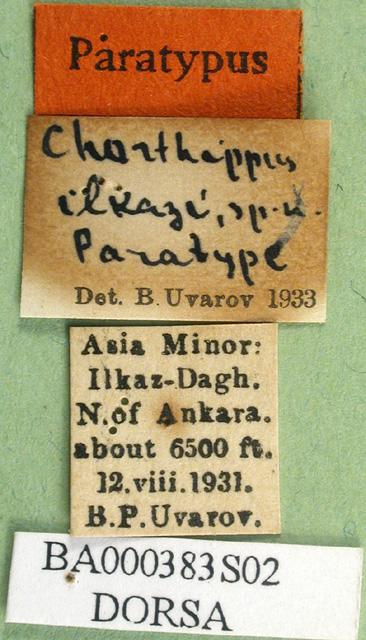 Paratypus
Chorthippus
ilkazi, sp. n.
Paratype
Det. B. Uvarov 1933
Asia Minor:
Ilkaz-Dagh.
N. of Ankara.
about 6500 ft.
12.viii.1931.
B.P.Uvarov.
BA000383S02
DORSA